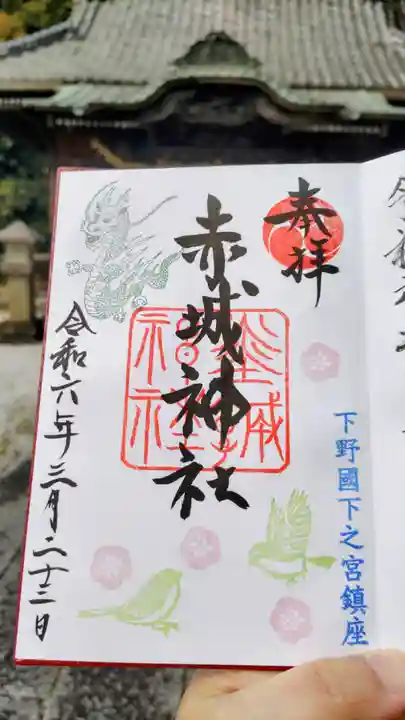 奉拝
下野國下之宮鎮座
赤城神社
令和六年三月二十三日